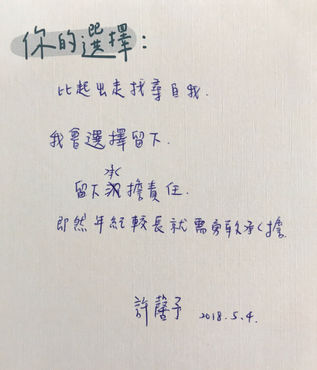 你的選擇：
比起出走找尋自我.
我會選擇留下.
留下承擔責任.
即然年紀較長就需勇敢承擔.
許馨予 2018.5.4.